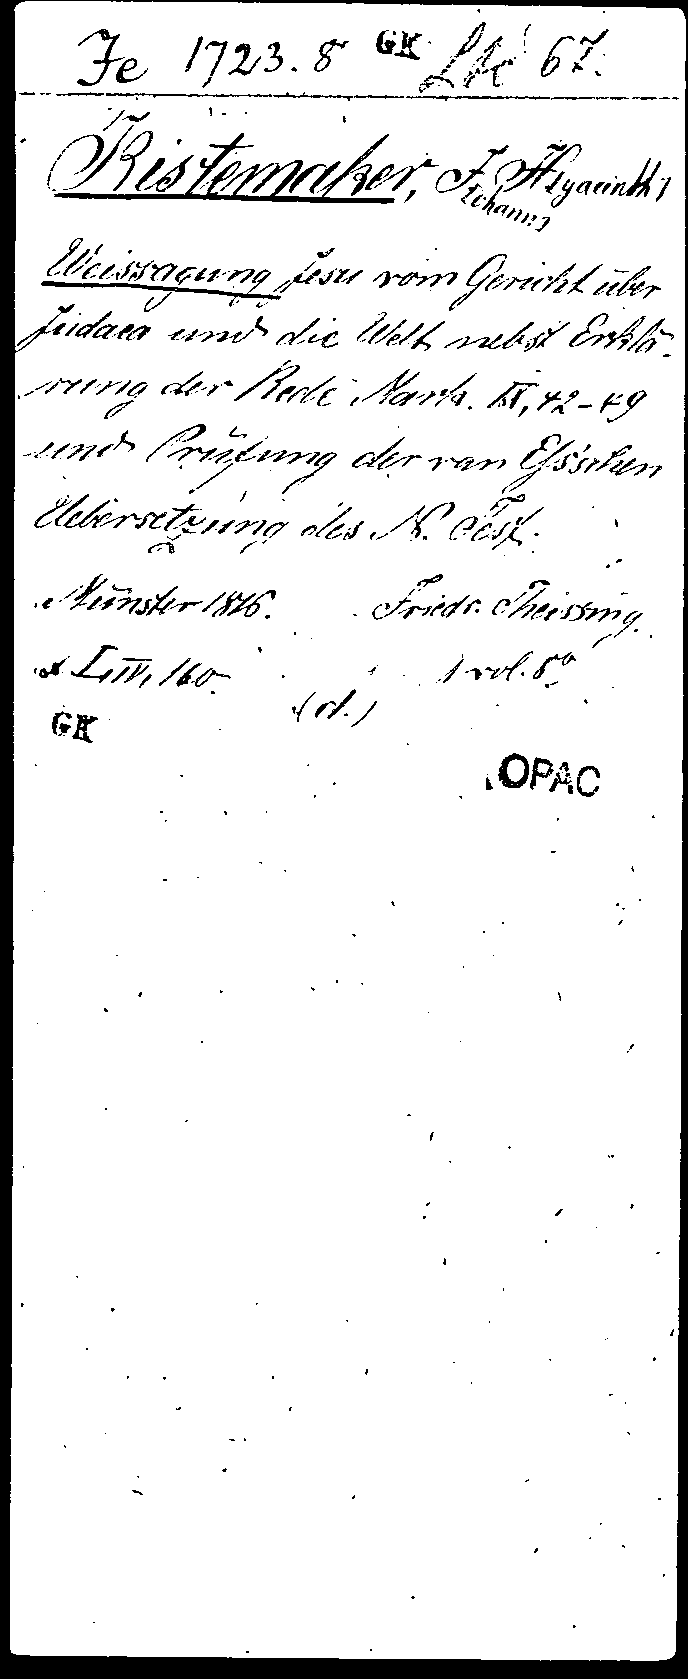 Je 1723.8 GK Lbc 67.
Kistemaker, J[ohann] H[yacinth]
Weissagung Jesu vom Gericht über
Judaea und die Welt nebst Erklä-
rung der Rede Mark. IX, 42-49
und Prüfung der van Eß'schen
Uebersetzung des N. Test.
Münster 1816. Friedr. Theissing.
IV, 160. 1 vol. 8º
(d.)
GK
OPAC